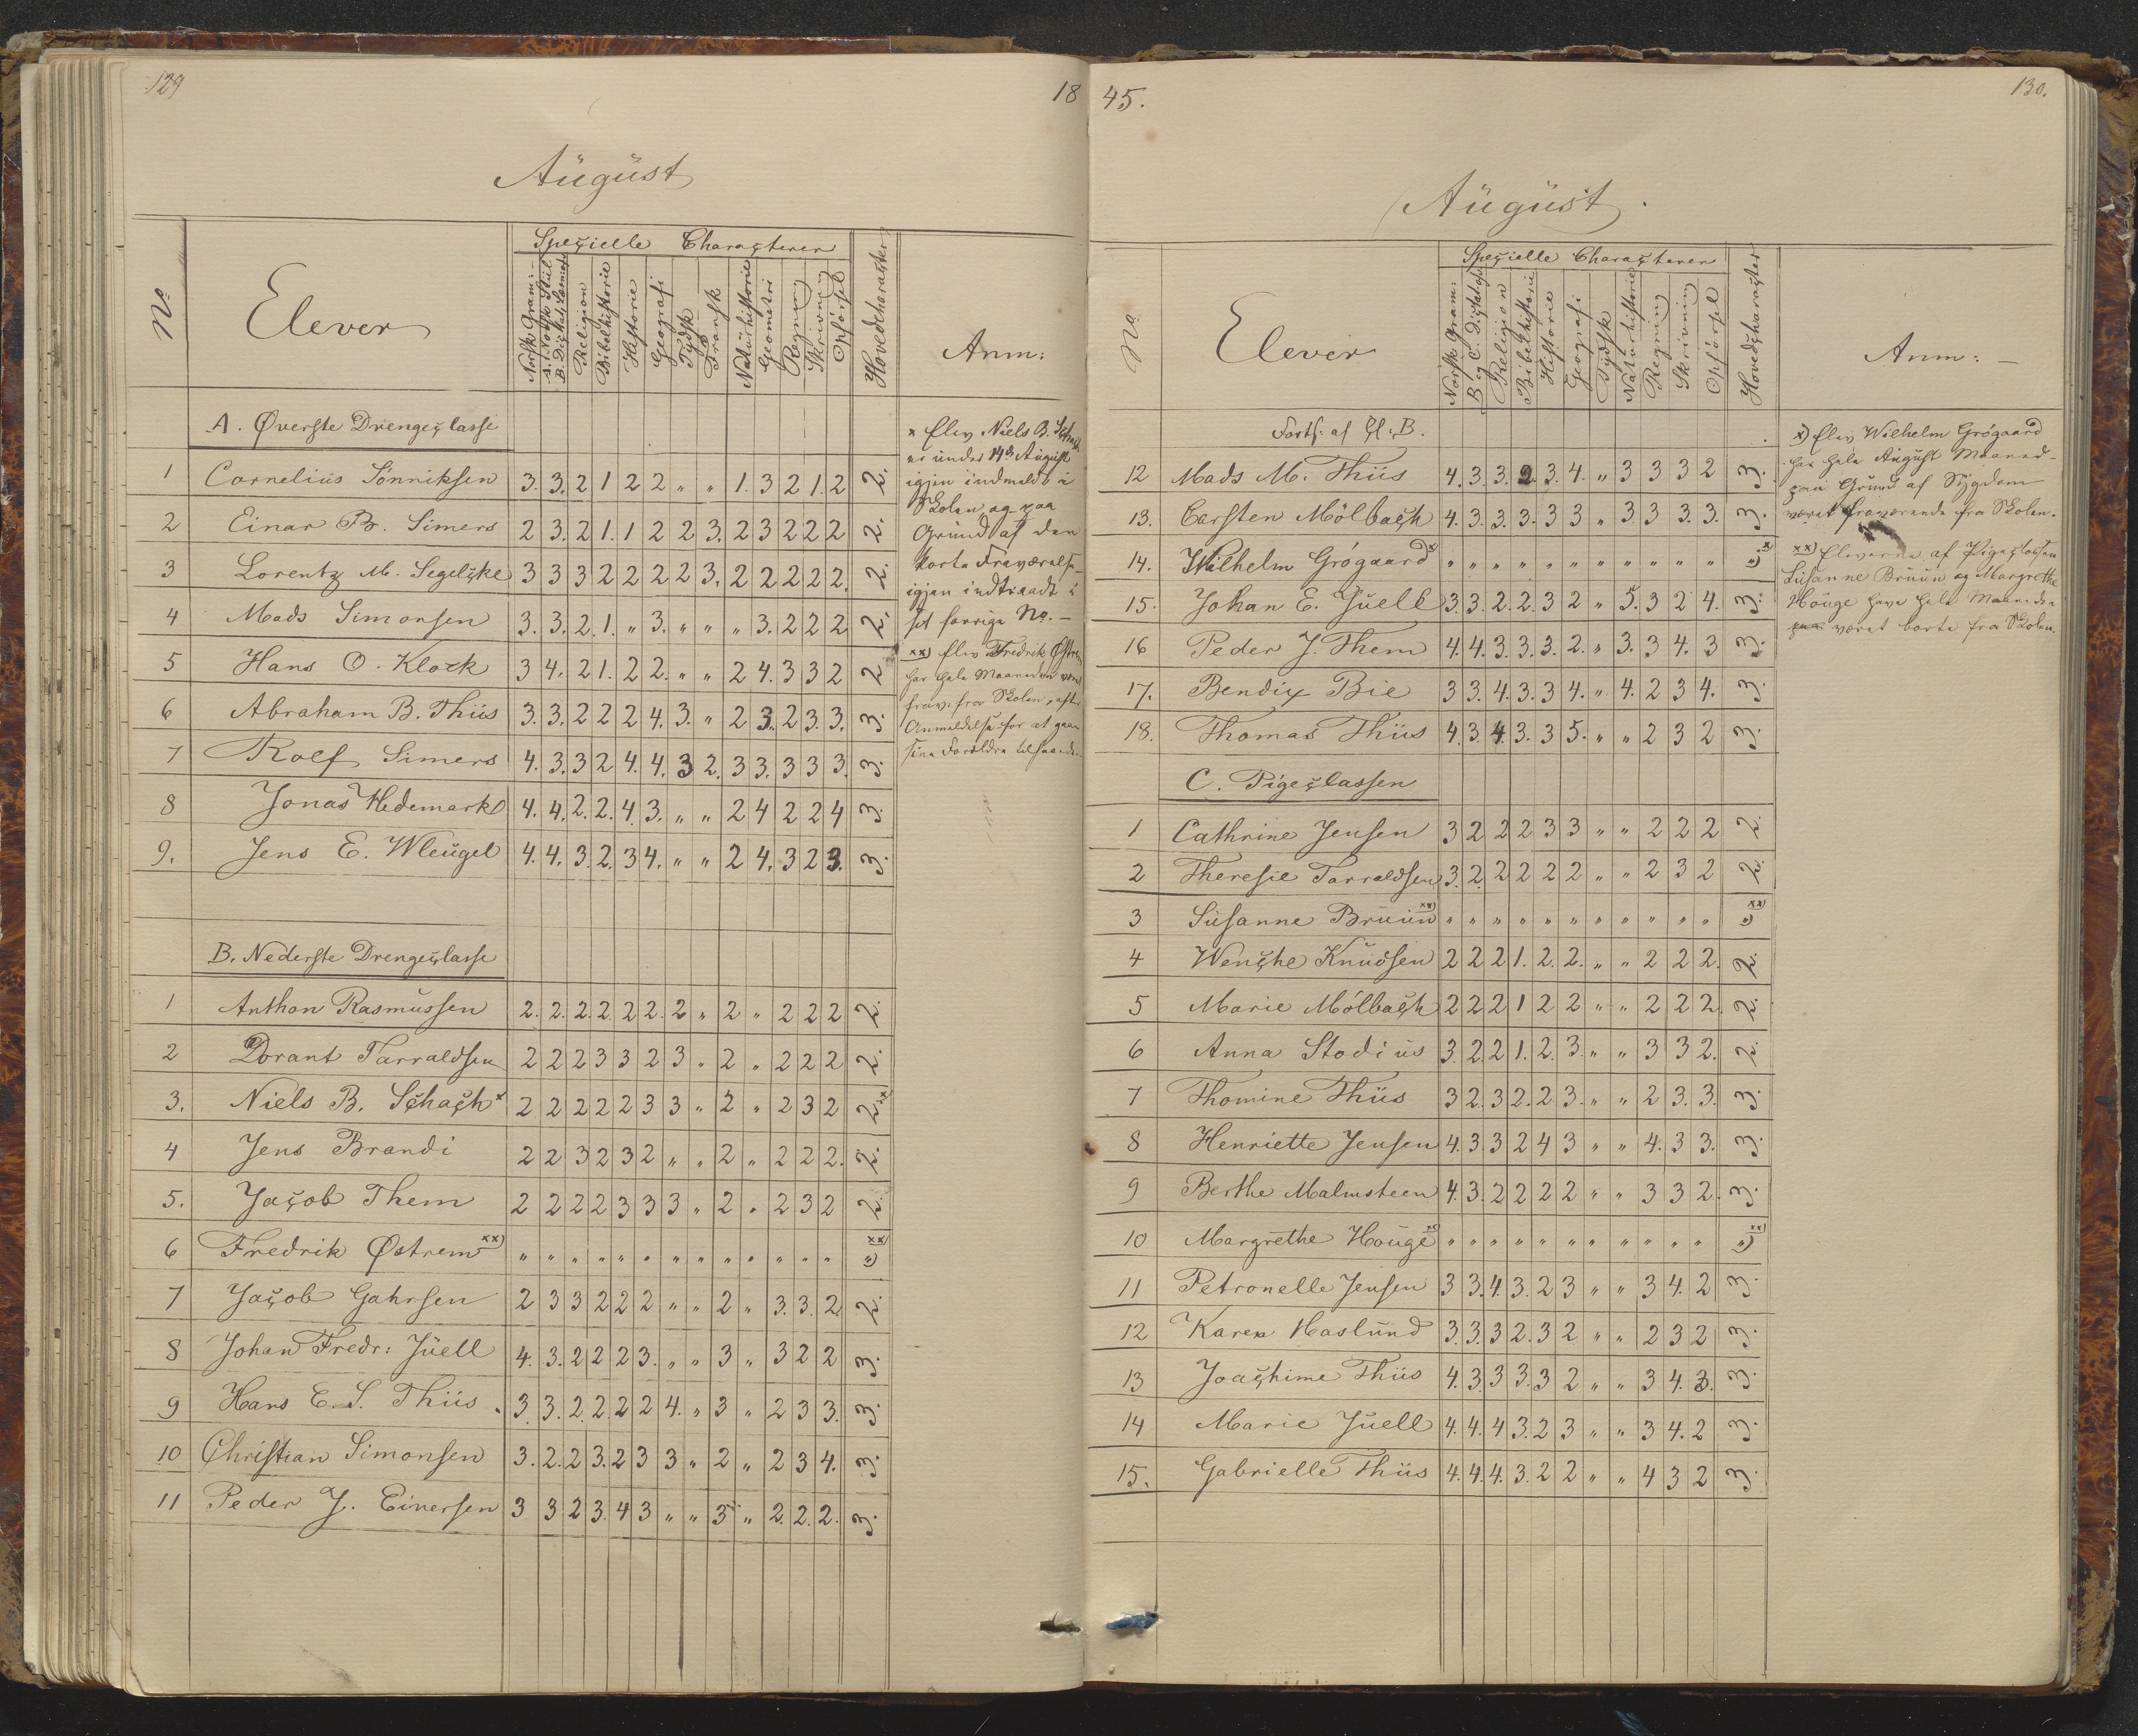 129
18
August
No
Elever
Specielle Characterer
Norsk Gram:
A. Norsk Stiil
B. Dictat. Læsning
Religion
Bibelhistorie
Historie
Geografi
Tydsk
Fransk
Naturhistorie
Geometri
Regning
Skrivning
Opførsel
Hovedcharacter
Anm:
A. Øverste Drengeclasse
1 Cornelius Sønniksen 3. 3. 2 1 2 2 " " 1. 3 2 1. 2 2.
2 Einar B. Simers 2 3. 2 1. 1 2 2 3. 2 3 2 2 2 2.
3 Lorentz M. Segelcke 3 3 3 2 2 2 2 2 3. 2 2 2 2 2. 2.
4 Mads Simonsen 3. 3. 2. 1. " 3. " " " 3. 2 2 2 2.
5 Hans O. Klock 3 4. 2 1. 2 2. " " 2 4. 3 3 2 2
6 Abraham B. Thiis 3. 3. 2 2 2 4. 3. " 2 3. 2 3. 3. 3.
7 Rolf Simers 4. 3. 3 2 4. 4. 3 2. 3 3. 3 3 3. 3.
8 Jonas Hedemark 4. 4. 2. 2. 4. 3. " " 2 4 2 2 4 3.
9. Jens E. Wleugel 4. 4. 3. 2. 3 4. " " 2 4. 3 2 3. 3.
B. Nederste Drengeclasse
1 Anthon Rasmussen 2. 2. 2. 2. 2 2. 2 " 2 " 2 2 2 2.
2 Dorant Tarraldsen 2 2 2 3 3 2 3 " 2 " 2 2 2 2.
3. Niels B. Schach x 2 2 2 2 2 3 3 " 2 " 2 3 2 2 x)
4 Jens Brandi 2 2 3 2 3 2 " " 2 " 2 2 2. 2.
5. Jacob Them 2 2 2 2 3 3 3 " 2 " 2 3 2 2.
6 Fredrik Østrem xx) " " " " " " " " " " " " " " xx)
7 Jacob Gahrsen 2 3 3 2 2 2 " " 2 " 3. 3. 2 2.
8 Johan Fredr: Juell 4. 3. 2 2 2 3. " " 3 " 3 2 2 3.
9 Hans E. S. Thiis 3 3. 2. 2. 2 2 4. " 3 " 2 3 3. 3.
10 Christian Simonsen 3. 2. 2 3. 2 3 3 " 2 " 2 3 4. 3.
11 Peder J. Einersen 3 3 2 3. 4 3 " " 3 " 2. 2. 2. 3.
x Elev Niels B. Schach
er under 14de August
igjen indmeldt i
Skolen og paa
Grund af den
korte Fraværelse
igjen indtraadt i
sit forrige No. –
xx) Elev Fredrik Østrem
har hele Maaneden været
frav. fra Skolen, efter
Anmeldelse for at gaae
sine Forældre tilhaande.
45.
130.
August.
No
Elever
Specielle Characterer
Norsk Gram:
B og C. Dictat og
Religion
Bibelhistorie
Historie
Geografi
Tydsk
Naturhistorie
Regning
Skrivning
Opførsel
Hovedcharacter
Anm: –
Forts: af Cl: B.
12 Mads M. Thiis 4. 3. 3. 2. 3. 4. " 3 3 3 2 3.
13. Carsten Mölbach 4. 3. 3. 3. 3 3 " 3. 3 3. 3. 3.
14. Wilhelm Grógaard x " " " " " " " " " " " " x)
15. Johan E. Juell 3. 3. 2. 2. 3 2 " 5. 3 2 4. 3.
16 Peder J. Them 4. 4. 3. 3. 3. 2. " 3. 3 4. 3 3.
17. Bendix Bie 3 3. 4. 3. 3 4. " 4. 2 3 4. 3.
18. Thomas Thiis 4. 3. 4. 3. 3 5. " " 2 3 2 3.
C. Pigeclassen
1 Cathrine Jensen 3 2 2 2 3 3 " " 2 2 2 2.
2 Theresie Tarraldsen 3. 2. 2 2 2 2 " " 2 3 2 2.
3 Susanne Bruun xx) " " " " " " " " " " " " xx)
4 Wenche Knudsen 2 2 2 1. 2. 2. " " 2 2 2. 2.
5 Marie Mólbach 2 2 2 1 2 2 " " 2 2 2. 2.
6 Anna Stodius 3. 2. 2 1. 2. 3. " " 3 3 2. 2.
7 Thomine Thiis 3 2. 3 2. 2 3. " " 2 3. 3. 3.
8 Henriette Jensen 4. 3 3 2 4 3 " " 4. 3 3. 3.
9 Berthe Malmsteen 4. 3. 2 2 2 2 " " 3 3 2. 3.
10 Margrethe Houge xx) " " " " " " " " " " " " xx)
11 Petronelle Jensen 3 3. 4. 3. 2 3 " " 3 4. 2 3.
12 Karen Haslund 3. 3. 3 2. 3 2 " " 2 3 2 3.
13 Joachime Thiis 4. 3. 3 3. 3 2 " " 3 4. 3. 3.
14 Marie Juell 4. 4. 4 3. 2 3 " " 3 4. 2 3.
15. Gabrielle Thiis 4. 4. 4. 3. 2 2 " " 4 3 2 3.
x) Elev Wilhelm Grógaard
har hele August Maaned
paa Grund af Sygdom
været fraværende fra Skolen.
xx) Eleverne af Pigeclassen
Susanne Bruun og Margrethe
Houge have hele Maaneden
været borte fra Skolen.